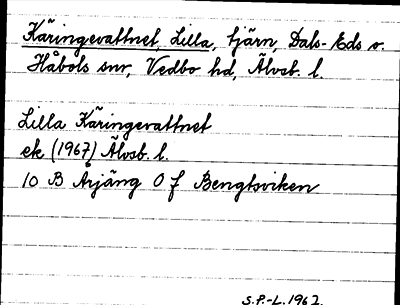 Käringevattnet, Lilla, tjärn, Dals-Eds o.
Håbols snr, Vedbo hd, Älvsb. l.
Lilla Käringevattnet
ek (1967) Älvsb. l.
10 B Årjäng 0 f Bengtsviken
S.P.-L. 1962.